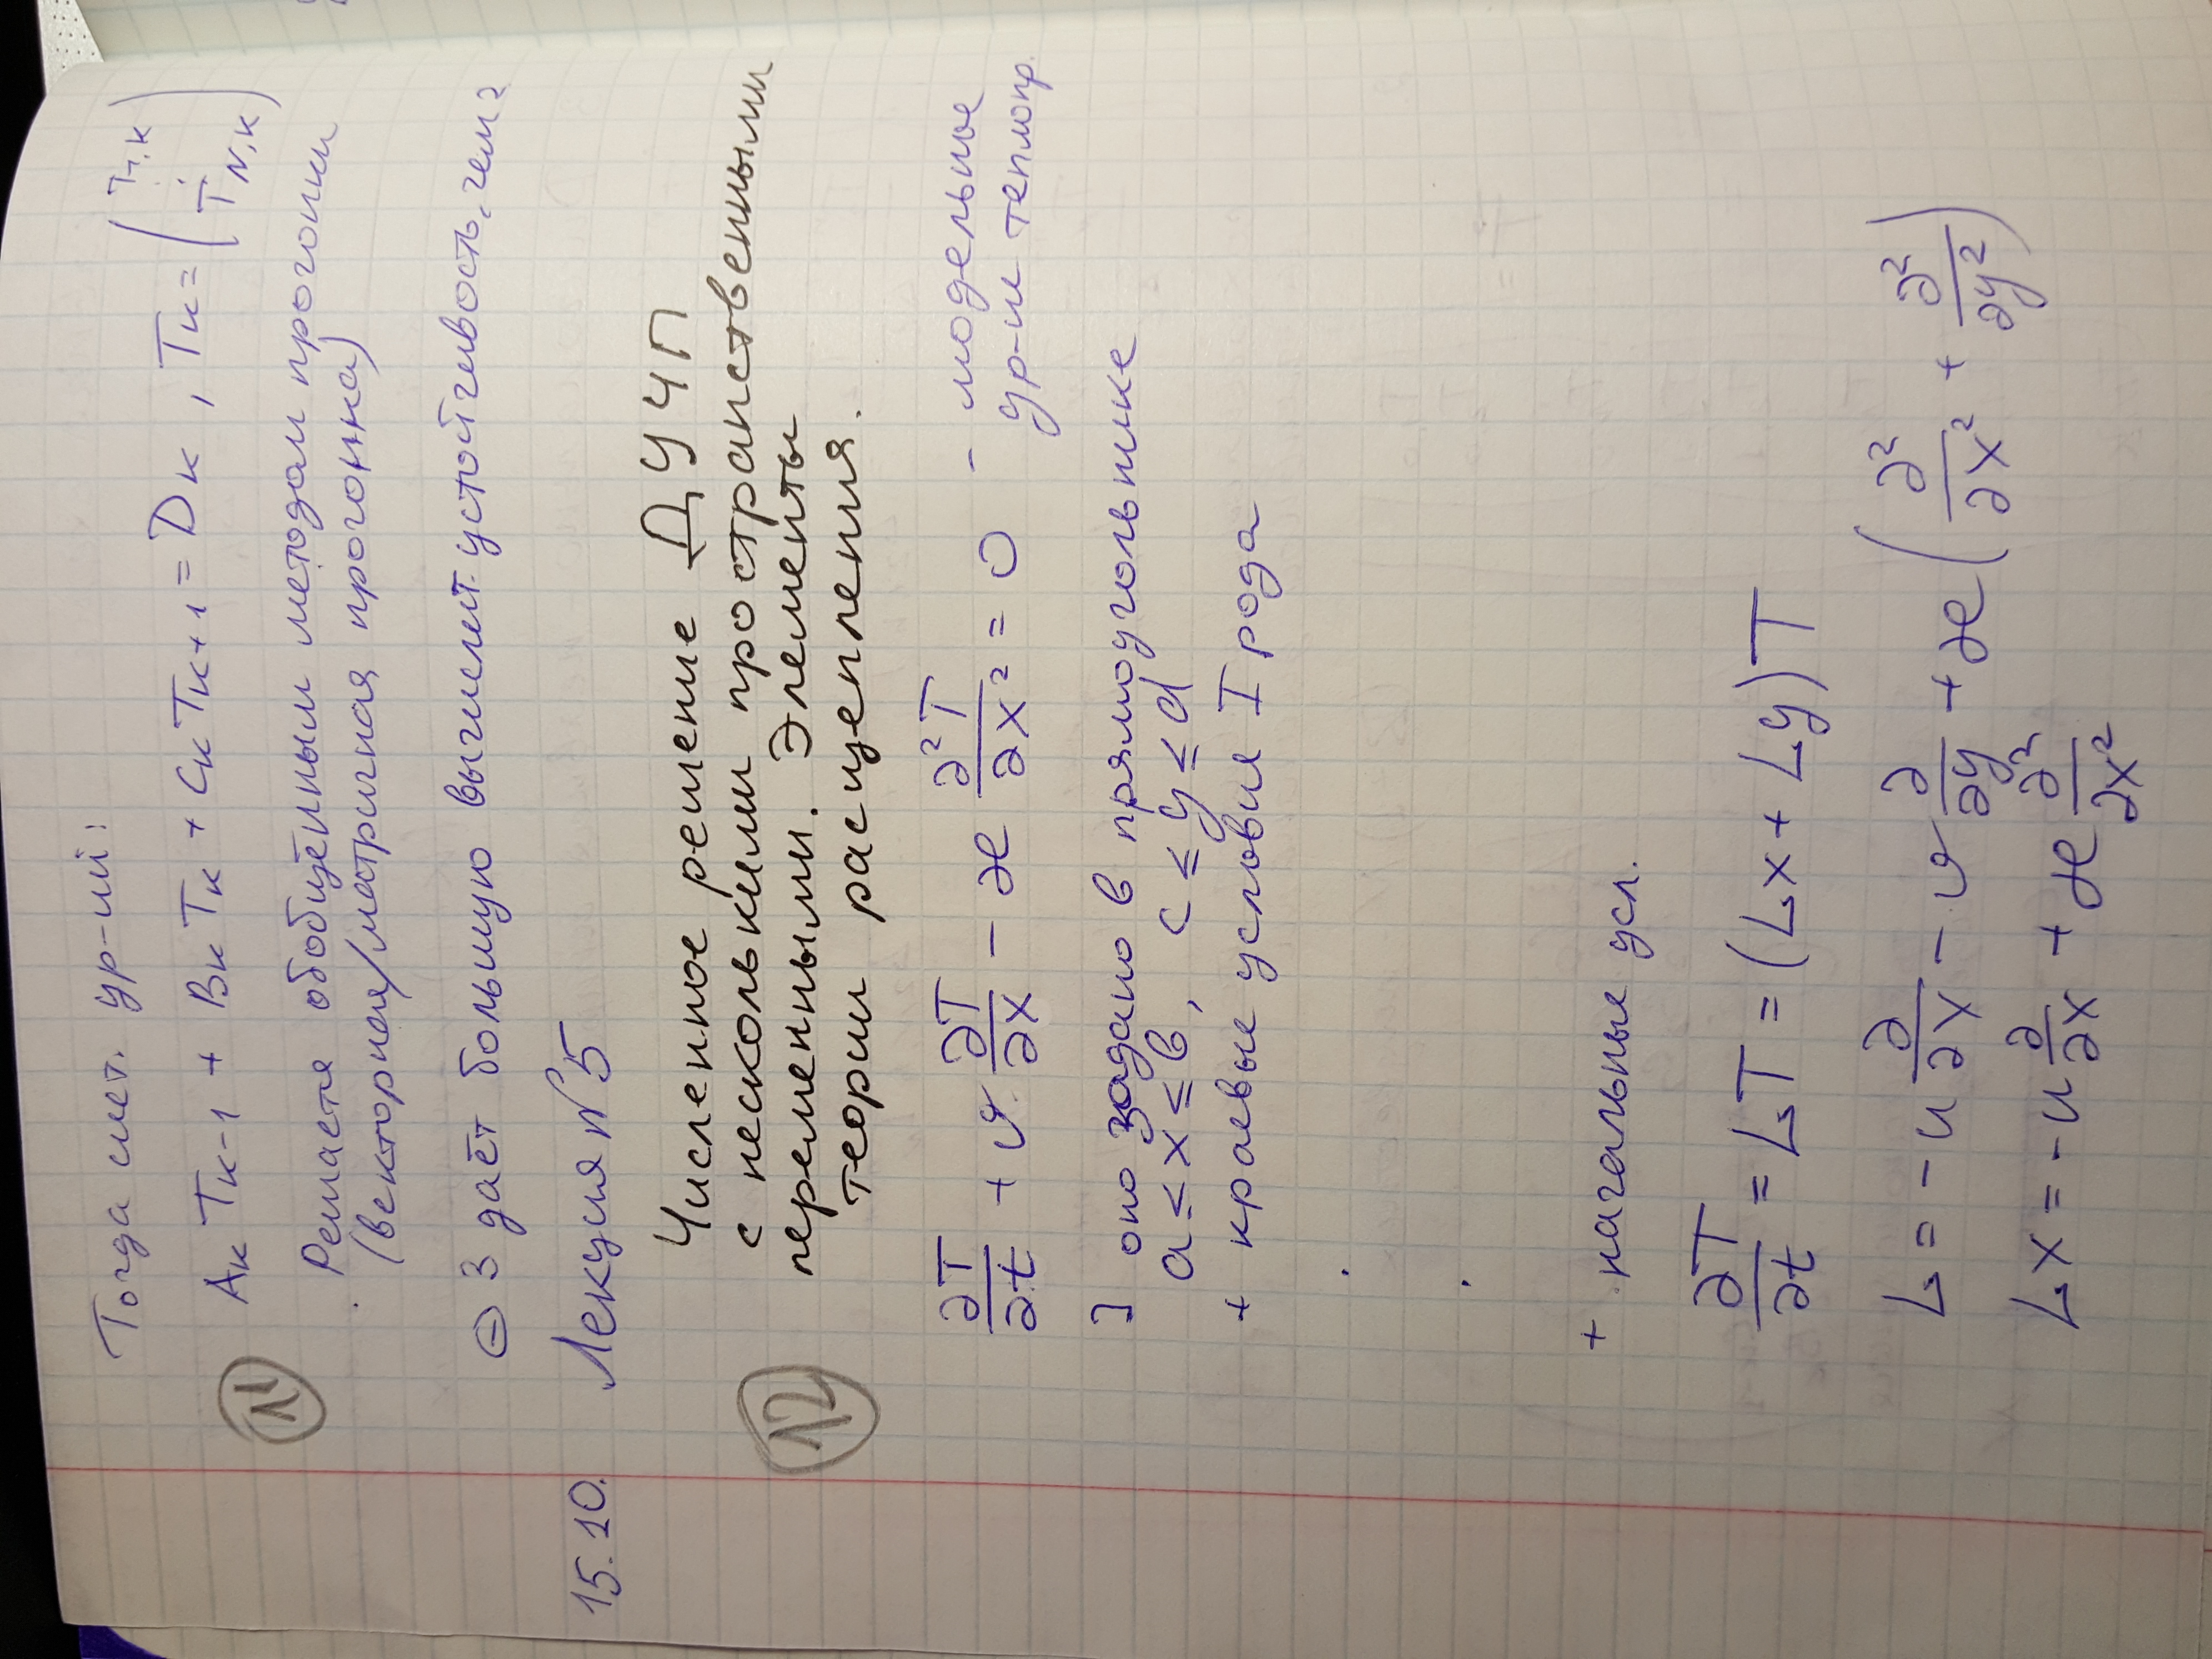 Тогда сист. ур-ий:
AₖTₖ₋₁ + BₖTₖ + CₖTₖ₊₁ = Dₖ, Tₖ = (T₁,ₖ ⋮ T_N,ₖ)
11
Решается обобщённым методом прогонки
(векторная/матричная прогонка)
⊖ 3 даёт большую вычислит. устойчивость, чем 2
15.10. Лекция №5
Численное решение ДУЧП
с несколькими пространственными
12
переменными. Элементы
теории расщепления.
∂T/∂t + v ∂T/∂x - æ ∂²T/∂x² = 0 - модельное
ур-ие теплопр.
] оно задано в прямоугольнике
a ≤ x ≤ b, c ≤ y ≤ d
+ краевые условия I рода
+ начальные усл.
∂T/∂t = LT = (Lx + Ly)T
L = -u ∂/∂x - v ∂/∂y + æ(∂²/∂x² + ∂²/∂y²)
Lx = -u ∂/∂x + æ ∂²/∂x²